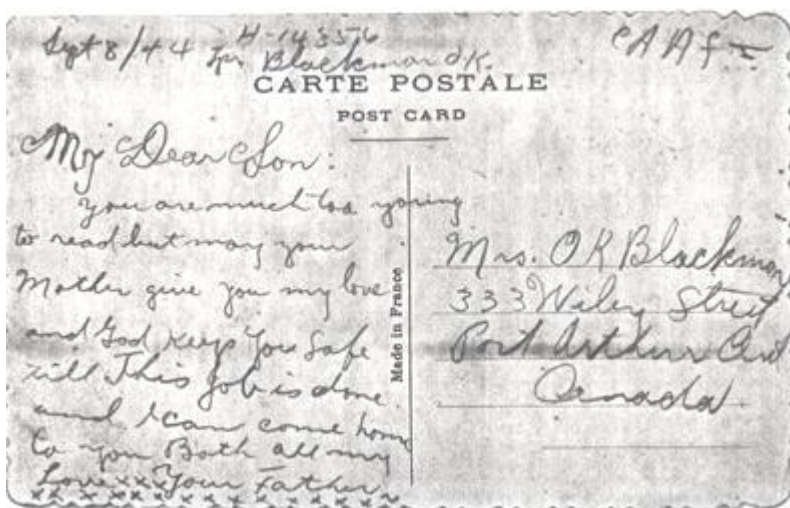 Sept 8/44 H-143556 CAAf
Spr Blackmon OK.
CARTE POSTALE
POST CARD
My Dear Son:
you are much too young
to read but may your
Mother give you my love
and God keep You Safe
till This job is done
and I can come home
to you Both all my
Love xxx Your Father
xxxxxxxxxxxxxxx
Made in France
Mrs. OK Blackmon
333 Wiley Street
Port Arthur Ont
Canada